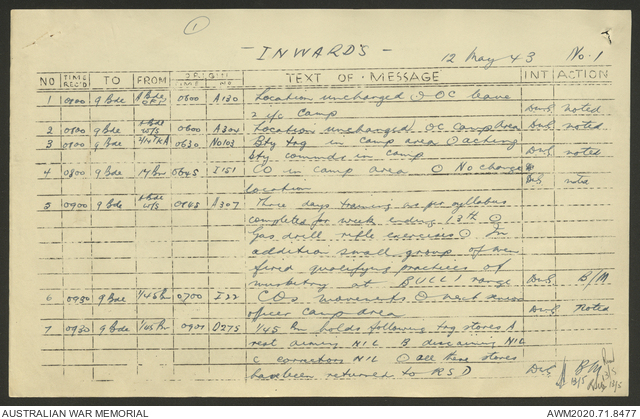 1
- INWARDS -
12 May 43 No. 1
NO TIME REC'D TO FROM ORIGIN TIME NO TEXT OF MESSAGE INT ACTION
1 0800 9 Bde A Bde 0600 A130 Location unchanged OC leave
2 i/c Camp DWS noted
2 0800 9 Bde 0600 A304 Location unchanged OC camp area DWS noted
3 0800 9 Bde 0630 NO103 Bty trg in camp area acting
Bty comnds in camp DWS noted
4 0800 9 Bde 0645 I151 CO in camp area No change
location DWS noted
5 0900 9 Bde 0845 A307 Three days training as per syllabus
completed for week ending 13th
Gas drill rifle exercises In
addition small group of men
fired qualifying practices of
musketry at BULLI range DWS B/M
6 0930 9 Bde 1/45 Bn 0700 I22 COs movements
officer camp area DWS Noted
7 0930 9 Bde 1/45 Bn 0901 D275 1/45 Bn holds following trg stores A
rest aiming NIL B NIL
C correctors NIL all these stores
have been returned to RSD DWS B/M
13/5
AUSTRALIAN WAR MEMORIAL AWM2020.71.8477